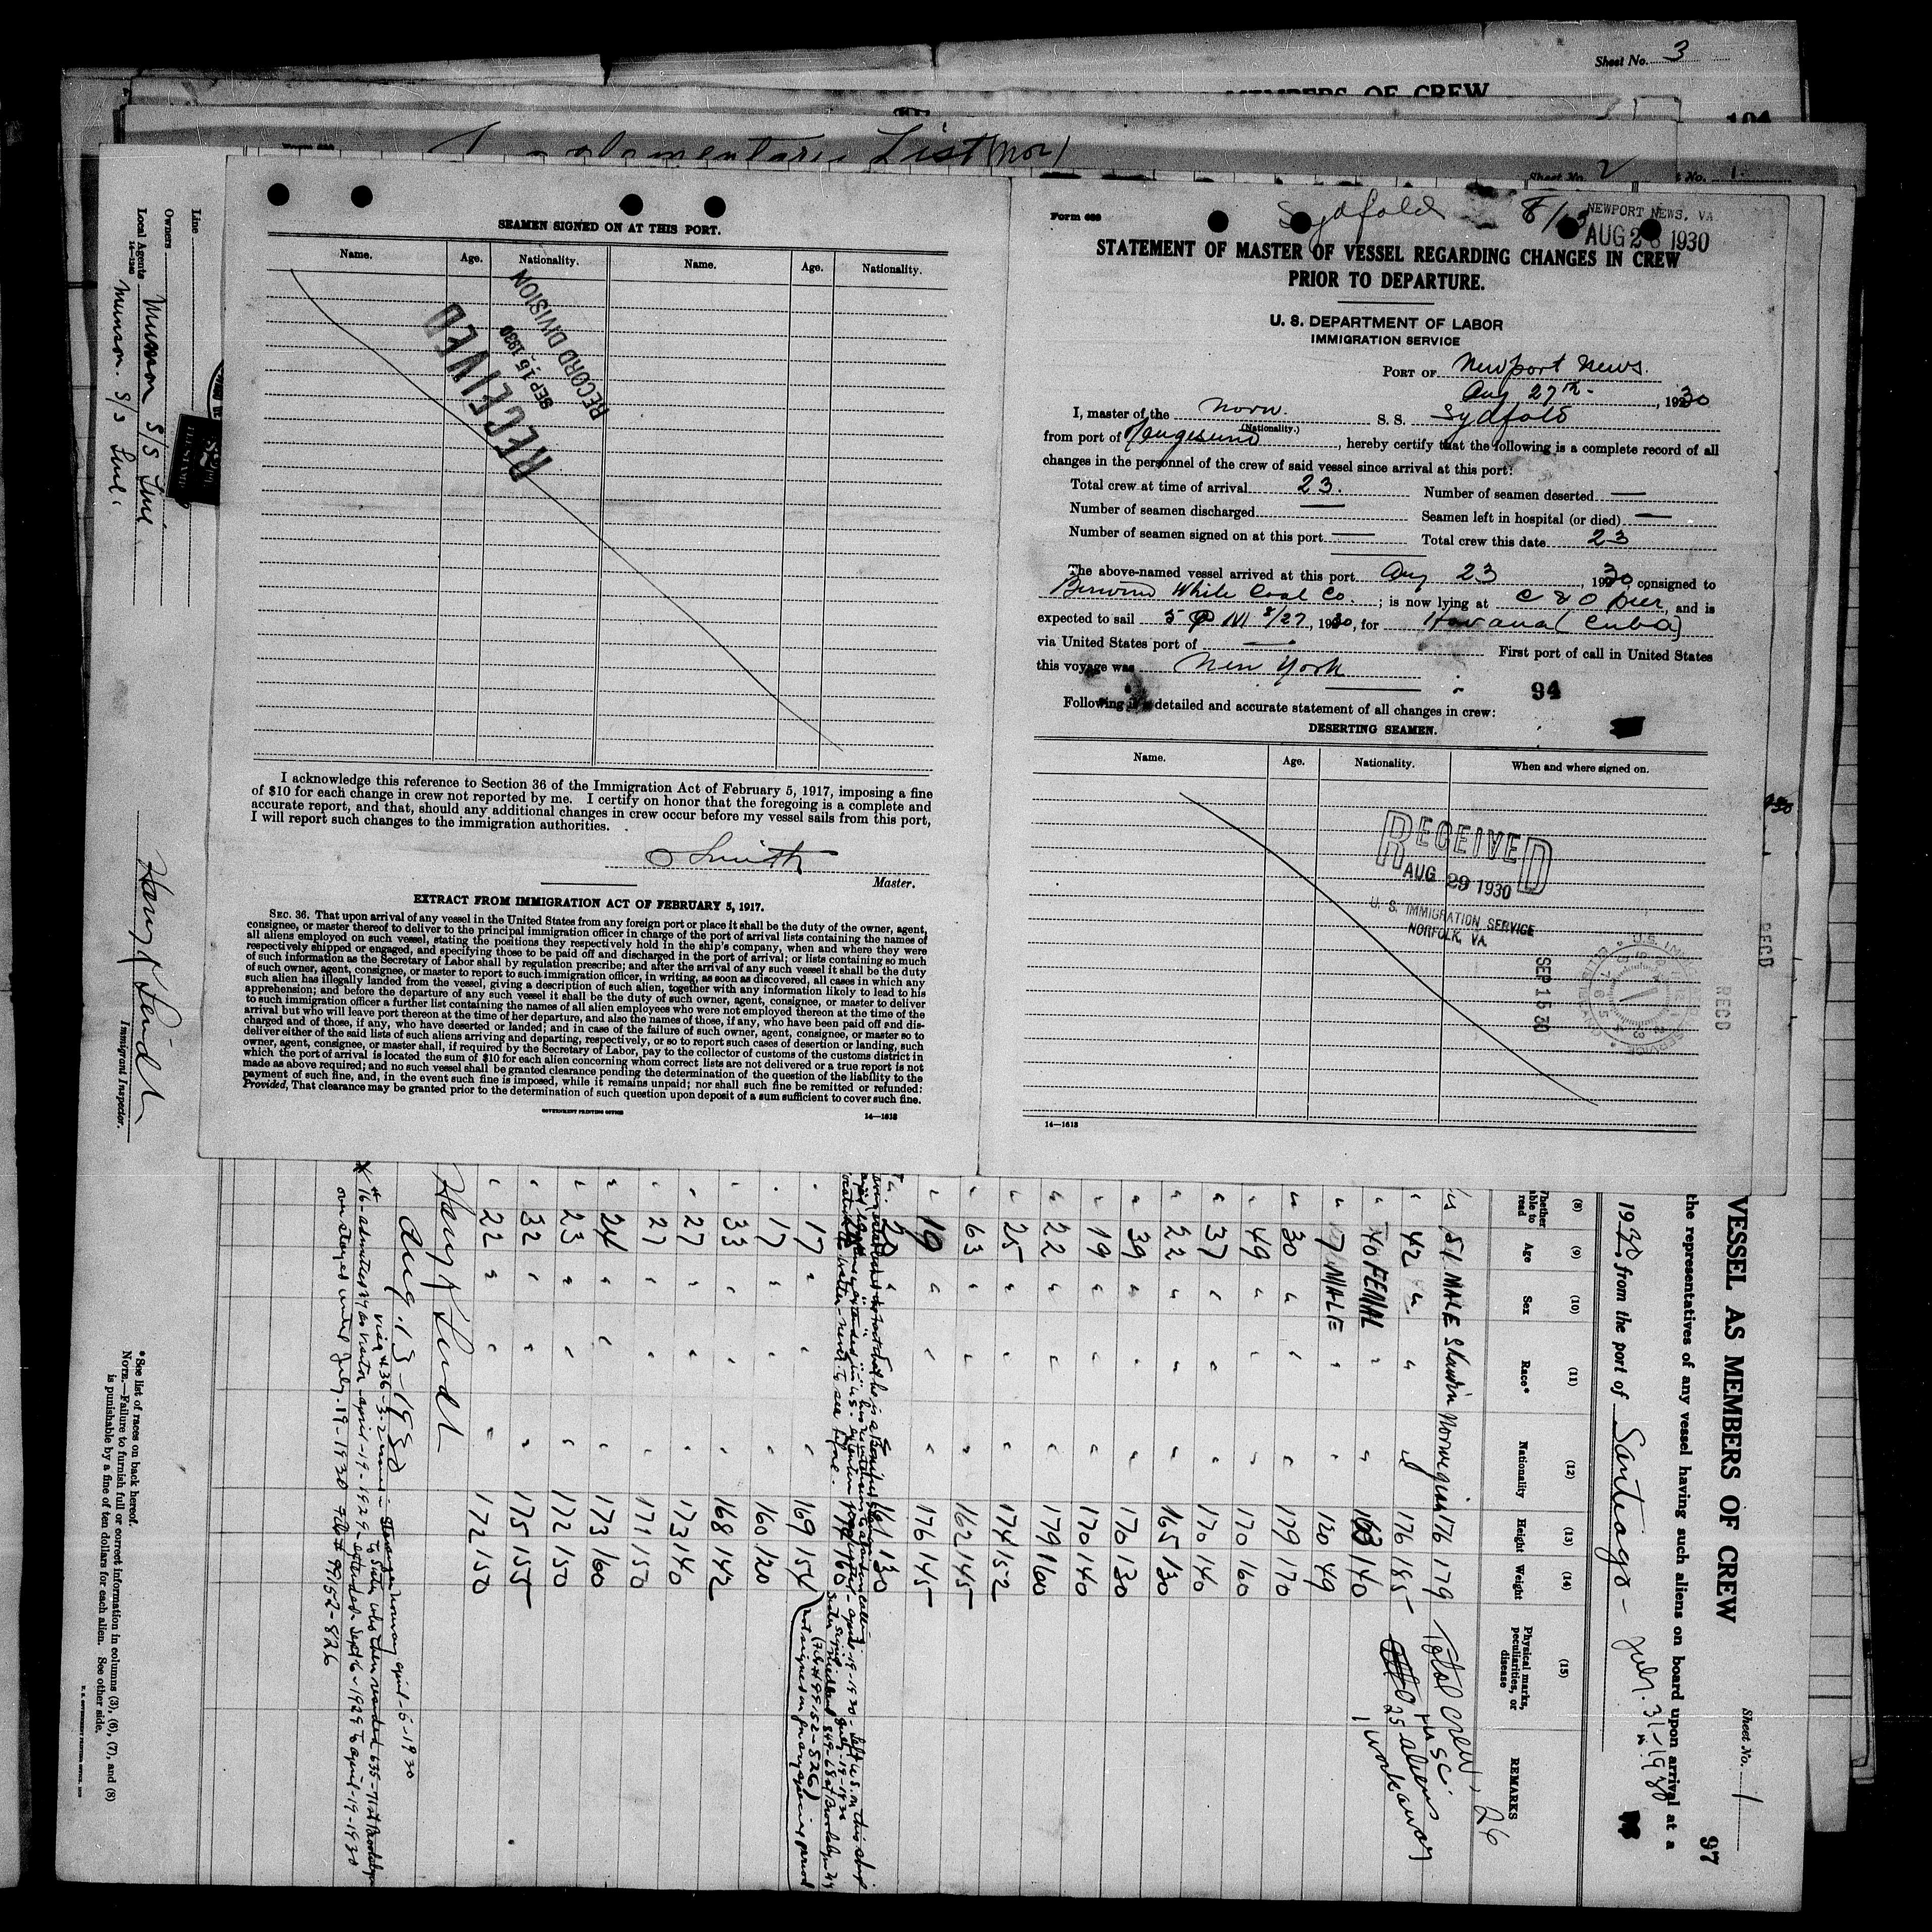 Sheet No. 3
MEMBERS OF CREW
List (nor)
Sheet No. 2
No. 1
SEAMEN SIGNED ON AT THIS PORT.
Name. Age. Nationality. Name. Age. Nationality.
RECEIVED
SEP 15 1930
RECORD DIVISION
I acknowledge this reference to Section 36 of the Immigration Act of February 5, 1917, imposing a fine
of $10 for each change in crew not reported by me. I certify on honor that the foregoing is a complete and
accurate report, and that, should any additional changes in crew occur before my vessel sails from this port,
I will report such changes to the immigration authorities.
O Smith
Master.
EXTRACT FROM IMMIGRATION ACT OF FEBRUARY 5, 1917.
SEC. 36. That upon arrival of any vessel in the United States from any foreign port or place it shall be the duty of the owner, agent,
consignee, or master thereof to deliver to the principal immigration officer in charge of the port of arrival lists containing the names of
all aliens employed on such vessel, stating the positions they respectively hold in the ship's company, when and where they were
respectively shipped or engaged, and specifying those to be paid off and discharged in the port of arrival; or lists containing so much
of such information as the Secretary of Labor shall by regulation prescribe; and after the arrival of any such vessel it shall be the duty
of such owner, agent, consignee, or master to report to such immigration officer, in writing, as soon as discovered, all cases in which any
such alien has illegally landed from the vessel, giving a description of such alien, together with any information likely to lead to his
apprehension; and before the departure of any such vessel it shall be the duty of such owner, agent, consignee, or master to deliver
to such immigration officer a further list containing the names of all alien employees who were not employed thereon at the time of the
arrival but who will leave port thereon at the time of her departure, and also the names of those, if any, who have been paid off and dis-
charged and of those, if any, who have deserted or landed; and in case of the failure of such owner, agent, consignee, or master so to
deliver either of the said lists of such aliens arriving and departing, respectively, or so to report such cases of desertion or landing, such
owner, agent, consignee, or master shall, if required by the Secretary of Labor, pay to the collector of customs of the customs district in
which the port of arrival is located the sum of $10 for each alien concerning whom correct lists are not delivered or a true report is not
made as above required; and no such vessel shall be granted clearance pending the determination of the question of the liability to the
payment of such fine, and, in the event such fine is imposed, while it remains unpaid; nor shall such fine be remitted or refunded:
Provided, That clearance may be granted prior to the determination of such question upon deposit of a sum sufficient to cover such fine.
GOVERNMENT PRINTING OFFICE
14—1613
Form 689
Sydfold 8/13
NEWPORT NEWS, VA
AUG 28 1930
STATEMENT OF MASTER OF VESSEL REGARDING CHANGES IN CREW
PRIOR TO DEPARTURE.
U. S. DEPARTMENT OF LABOR
IMMIGRATION SERVICE
PORT OF Newport News.
Aug 27th , 1930
I, master of the Norw. S. S. Sydfold
(Nationality.)
from port of Haugesund, hereby certify that the following is a complete record of all
changes in the personnel of the crew of said vessel since arrival at this port:
Total crew at time of arrival 23. Number of seamen deserted —
Number of seamen discharged — Seamen left in hospital (or died) —
Number of seamen signed on at this port — Total crew this date 23
The above-named vessel arrived at this port Aug 23, 1930, consigned to
Berwind White Coal Co.; is now lying at C & O Pier, and is
expected to sail 5 PM 8/27, 1930, for Havana (Cuba)
via United States port of — First port of call in United States
this voyage was New York
94
Following is a detailed and accurate statement of all changes in crew:
DESERTING SEAMEN.
Name. Age. Nationality. When and where signed on.
RECEIVED
AUG 29 1930
U. S. IMMIGRATION SERVICE
NORFOLK, VA.
SEP 15 30
RECD
RECD
14—1613
Line
Owners Munson S/S Line
Local Agents Munson S/S Line
14—1240
Harry K Lendl
Immigrant Inspector.
VESSEL AS MEMBERS OF CREW
Sheet No. 1
97
the representatives of any vessel having such aliens on board upon arrival at a
1930, from the port of Santiago - July. 31-1930
(8) (9) (10) (11) (12) (13) (14) (15)
Whether able to read Age Sex Race* Nationality Height Weight Physical marks, peculiarities, or disease REMARKS
51 MALE Skandin Norwegian 176 179 Total crew, 26
42 " " " 176 185
40 FEMAL " " 163 140 25 aliens
7 MALE " " 120 49 1 workaway
30 " " " 179 170
49 " " " 170 160
37 " " " 170 140
22 " " " 165 130
39 " " " 170 130
19 " " " 170 140
22 " " " 179 160
25 " " " 174 152
63 " " " 162 145
19 " " " 176 145
17 " " " 169 154
17 " " " 160 120
33 " " " 168 142
27 " " " 173 140
27 " " " 171 150
24 " " " 173 160
23 " " " 172 150
32 " " " 175 155
22 " " " 172 150
Harry K Lendl
Aug. 13-1930
over stayed until July-19-1930 File # 99152-826
*See list of races on back hereof.
NOTE.—Failure to furnish full or correct information in columns (3), (6), (7), and (8)
is punishable by a fine of ten dollars for each alien. See other side.